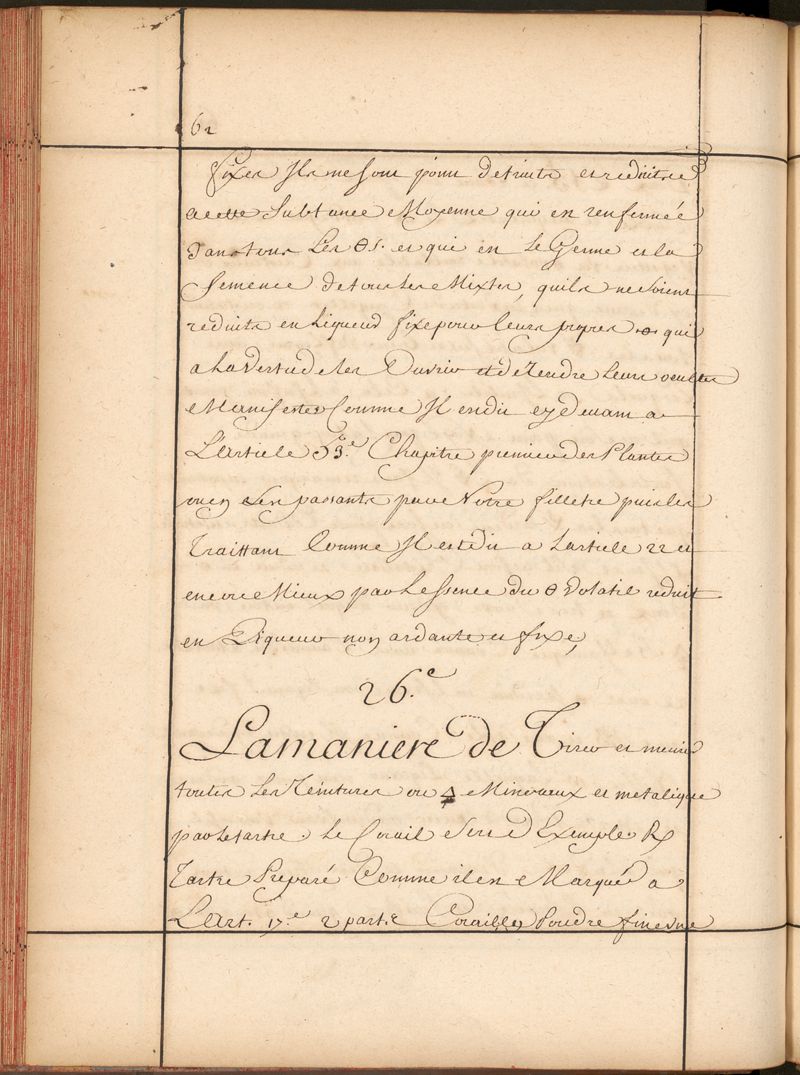 62
fixes Ils ne sont point detruits et reduits
a cette Substance Moyenne qui est renfermée
dans tous Les θs. et qui est Le Germe et la
Semence de tous les Mixtes, quils ne soient
reduits en Liqueur fixe pour leurs propres θ qui
a La Vertu de les Ouvrir et de Rendre Leurs occultes
Manifestes Comme Il est dit cy devant a
L'article 53.e Chapitre premier des Plantes
ou en Les passants par Notre filtre puis les
Traittant Comme Il est dit a Larticle 22 et
encore Mieux par Lessence du θ Volatil reduit
en Liqueur non ardante et fixe,
26.e
La maniere de Tirer et meurir
toutes Les Teintures ou 🜍 Mineraux et metalique
par Le tartre. Le Corail Sere d'Exemple. ℞
Tartre Preparé Comme il est Marqué a
L'Art. 17.e 2 part.e Corail en Poudre fine